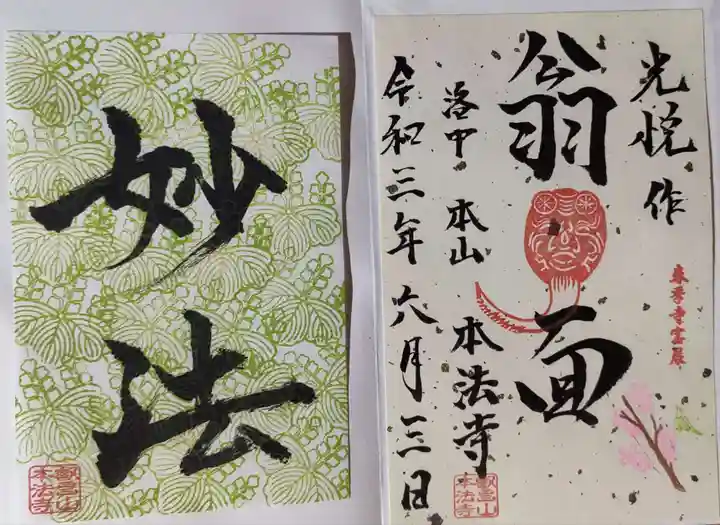 妙法
叡昌山
本法寺
光悦作
春季寺宝展
翁面
洛中 本山 本法寺
叡昌山
本法寺
令和三年六月三日